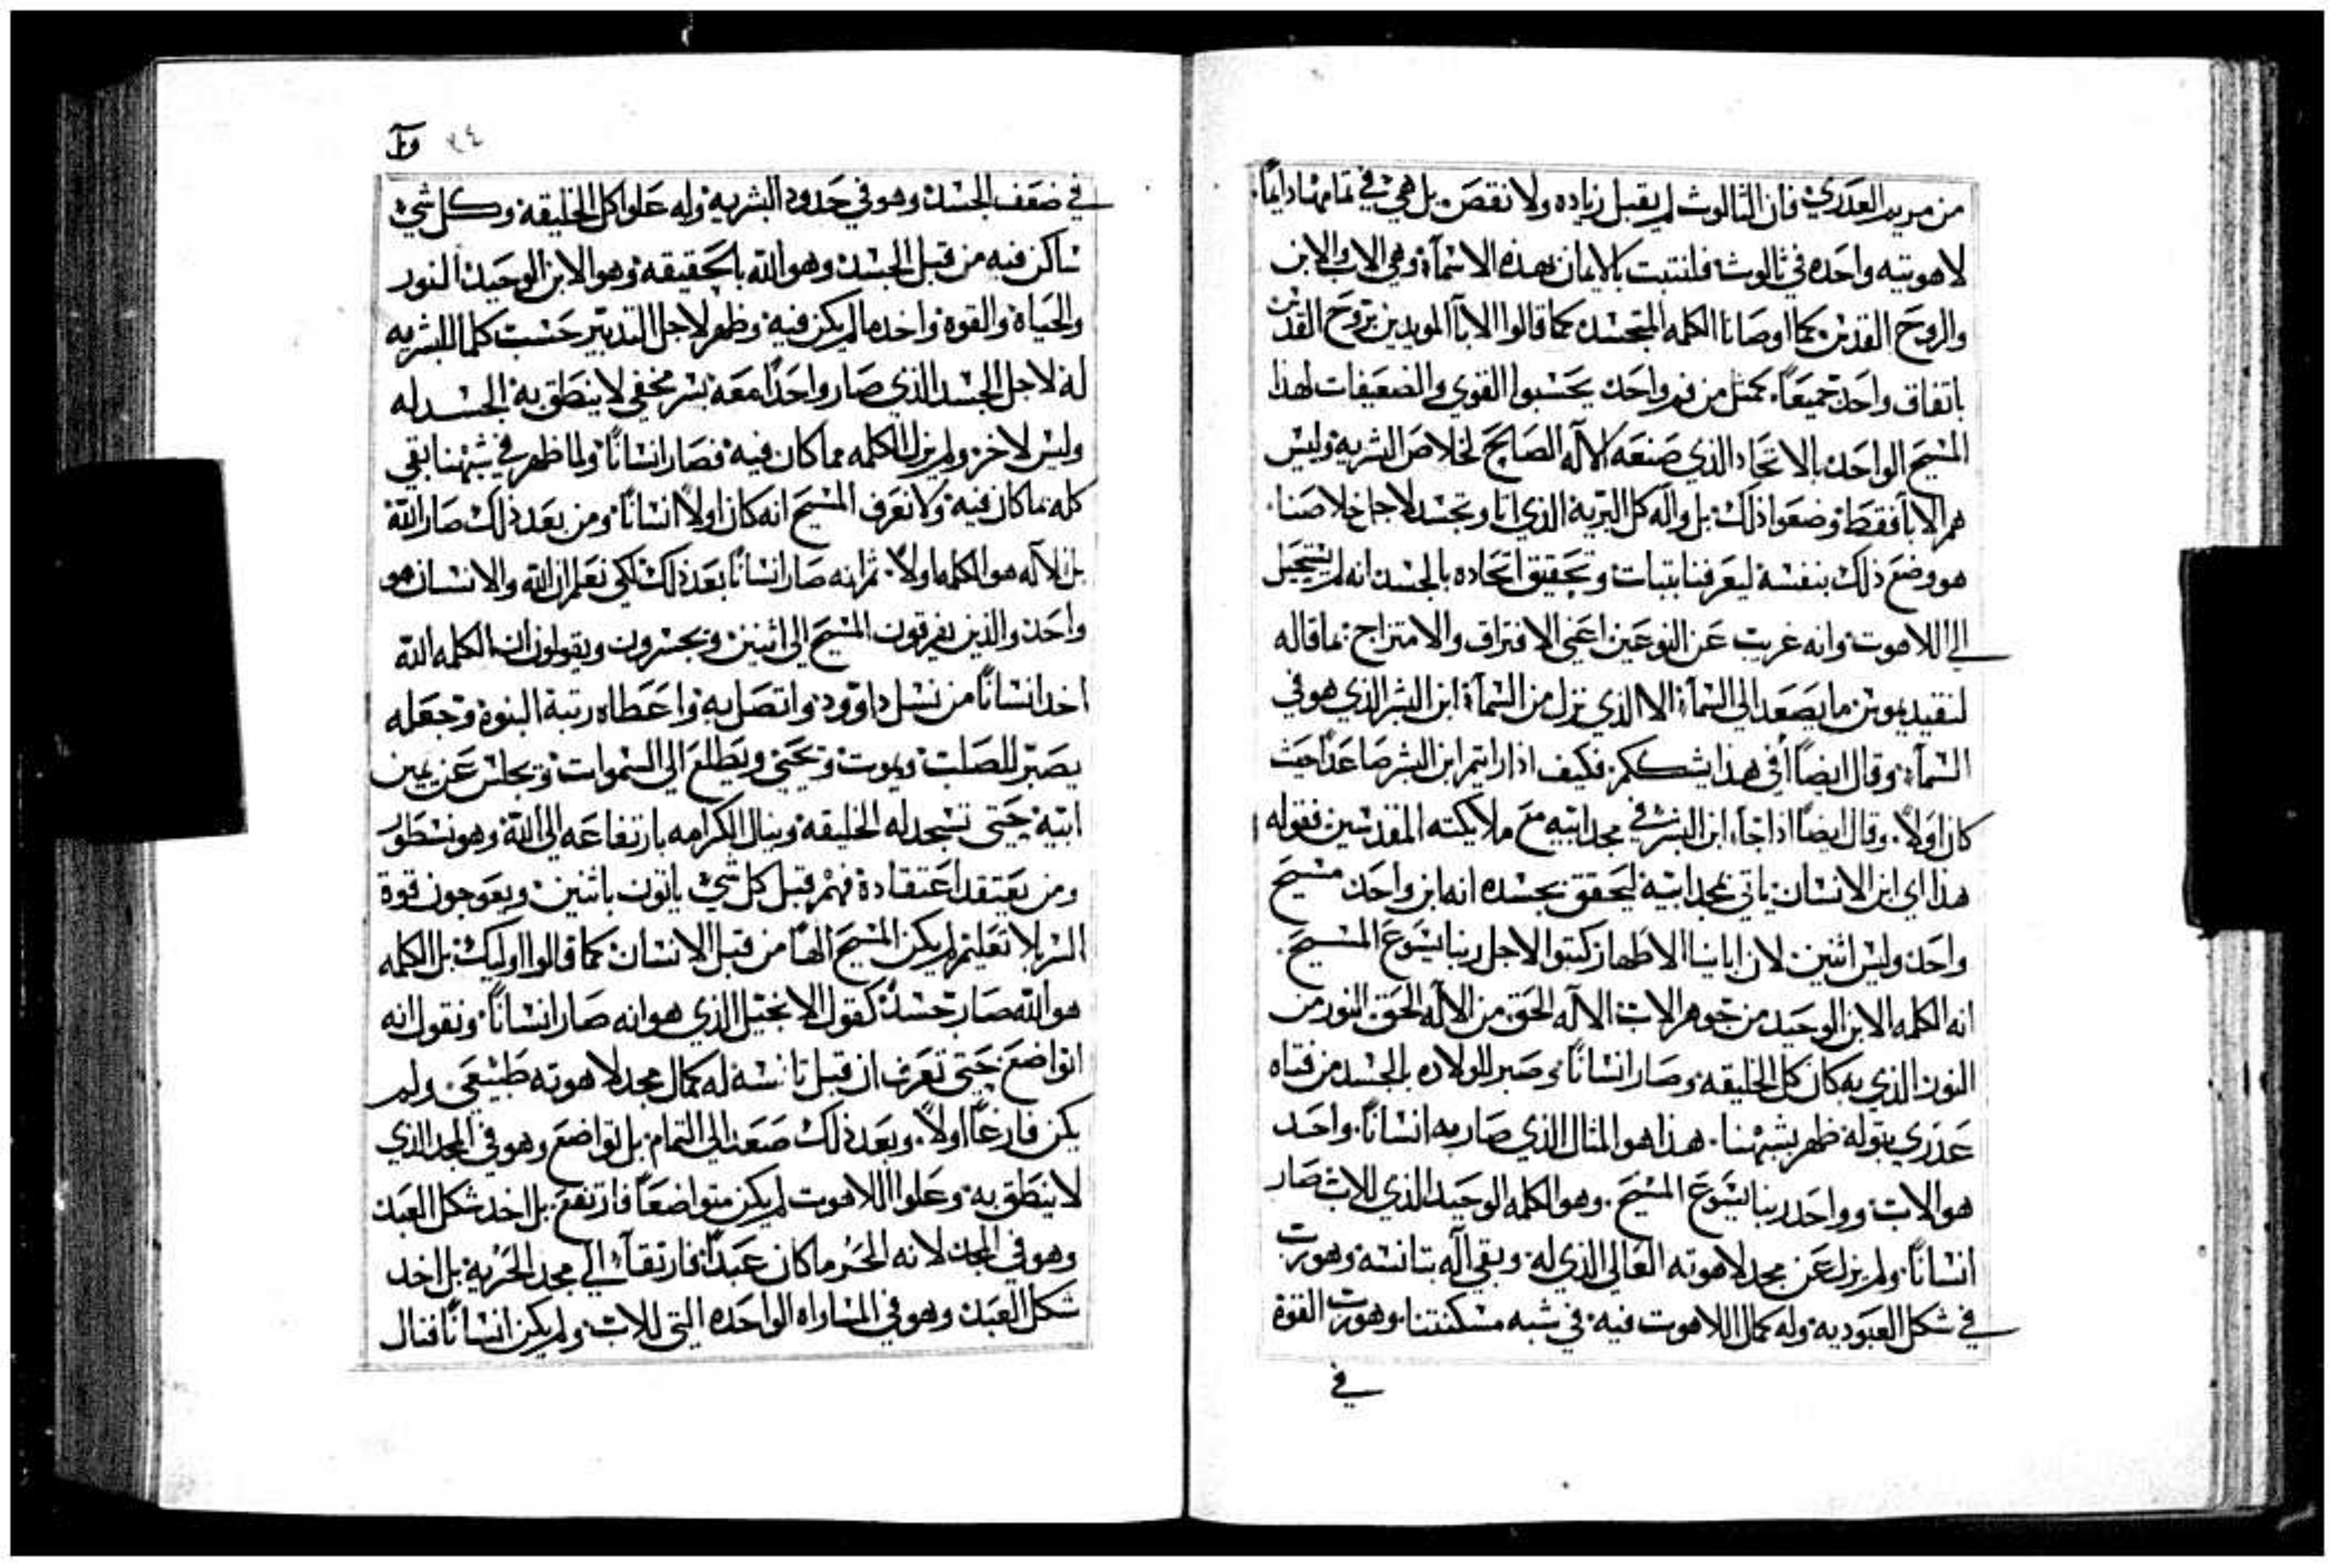 من مريم العدري فان الثالوث لم يقبل زياده ولا نقص بل هي في تمامها دايماً
لاهوتيه واحده في ثالوث فلنتبت بالايمان بهده الاسمآء وهي الاب والابن
والروح القدس كما اوصانا الكلمه المتجسد كما قالوا الابآ المويدين بروح القدس
باتفاق واحد جميعاً كمثل من فم واحد يحسبوا القوي والضعيفات لهذا
المسيح الواحد بالاتحاد الذي صنعه الاله الصالح لخلاص البشريه وليس
هم الابآ فقط وضعوا ذلك بل واله كل البريه الذي اتا وتجسد لاجل خلاصنا
هو وضع ذلك بنفسه ليعرفنا بتبات وتحقيق اتحاده بالجسد انه لم يستحيل
الي اللاهوت وانه غريب عن النوعين اعني الافتراق والامتزاج بما قاله
لنقيديموس ما يصعد الى السمآء الا الذي نزل من السمآء ابن البشر الذي هو في
السمآء وقال ايضاً افي هدا يشككم فكيف ادا رايتم ابن البشر صاعداً حيث
كان اولاً وقال ايضاً ادا جآء ابن البشر في مجد ابيه مع ملايكته المقدسين فقوله
هذا اي ابن الانسان ياتي بمجد ابيه ليحقق بجسده انه ابن واحد مسيح
واحد وليس اثنين لان اباينا الاطهار كتبوا لاجل ربنا يسوع المسيح
انه الكلمه الابن الوحيد من جوهر الاب الاله الحق من الاله الحق النور من
النور الذي به كان كل الخليقه وصار انساناً وصبر للولاده بالجسد من فتاه
عدري بتوله ظهر بشبهنا هذا هو المثال الذي صار به انساناً واحد
هو الاب وواحد ربنا يسوع المسيح وهو الكلمه الوحيد الذي للاب صار
انساناً ولم يزل عن مجد لاهوته العالي الذي له وبقي اله بتانسه وهو رب
في شكل العبوديه وله كمال اللاهوت فيه في شبه مسكنتنا وهو رب القوة
في
في ضعف الجسد وهو في حدود البشريه وله علوا كل الخليقه وكل شي
ساكن فيه من قبل الجسد وهو الله بالحقيقه وهو الابن الوحيد النور
والحياة والقوة واخد ما لم يكن فيه وظهر لاجل التدبير حسبت كلما للبشريه
له لاجل الجسد الذي صار واحداً معه بسر مخفي لا ينطق به الجسد له
وليس لاخر ولم يزل الكلمه مما كان فيه فصار انساناً ولما ظهر في شبهنا بقي
كله بما كان فيه ولا نعرف المسيح انه كان اولاً انساناً ومن بعد ذلك صار الله
بل الاله هو الكلمه اولاً ثم انه صار انساناً بعد ذلك لكي نعلم ان الله والانسان هو
واحد والذين يفرقون المسيح الى اثنين ويجسرون ويقولون ان الكلمه الله
اخد انساناً من نسل داوود واتصل به واعطاه رتبة البنوة وجعله
يصبر للصلب ويموت ويحيى ويطلع الى السموات ويجلس عن يمين
ابيه حتى تسجد له الخليقه وينال الكرامه بارتفاعه الى الله وهو نسطور
ومن يعتقد اعتقاده فهم قبل كل شي ياتون باثنين ويعوجون قوة
السر بلا تعليم لم يكن المسيح الهاً من قبل الانسان كما قالوا اوليك بل الكلمه
هو الله صار جسد كقول الانجيل الذي هو انه صار انساناً ونقول انه
اتواضع حتى تعرف ان قبل تانسه له كمال مجد لاهوته طبيعي ولم
يكن فارغاً اولاً وبعد ذلك صعد الى التمام بل تواضع وهو في المجد الذي
لا ينطق به وعلوا اللاهوت لم يكن متواضعاً فارتفع بل اخد شكل العبد
وهو في المجد لانه الحر ما كان عبداً فارتقآء الي مجد الحريه بل اخد
شكل العبد وهو في المساواه الواحده التي للاب ولم يكن انساناً فنال